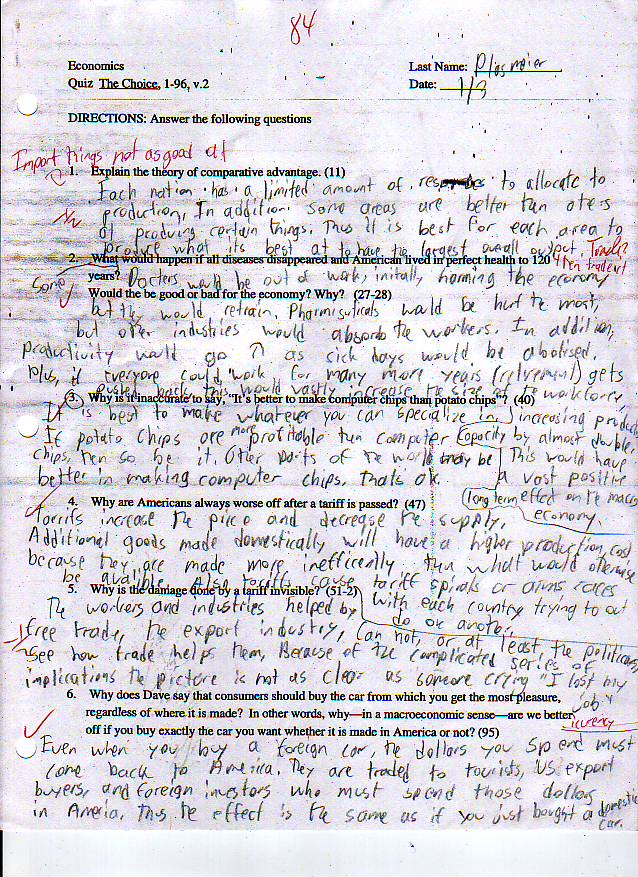 84
Economics
Last Name: Plasmeier
Quiz The Choice, 1-96, v.2
Date: 1/3
DIRECTIONS: Answer the following questions
Import things not as good at
1. Explain the theory of comparative advantage. (11)
Each nation has a limited amount of to allocate to
production, In addition some areas are better tan oters
at producing certain things. Thus it is best for each area to
produce what its best at to have the largest overall output. Trade?
2. What would happen if all diseases disappeared and American lived in perfect health to 120
years? Docters would be out of work, initally harming the economy
Some
Would the be good or bad for the economy? Why? (27-28)
but they would retrain, Pharmisuticals would be hurt te most,
but oter industries would absorb the workers. In addition,
productivity would go ↑ as sick days would be abolised.
Plus, if everyone could work for many more years (retirement) gets
pushed back this would vastly increase te size of te workforce,
3. Why is it inaccurate to say, "It's better to make computer chips than potato chips"? (40)
It is best to make whatever you can specialize in. increasing product
If potato chips are more profitable tan computer capacity by almost double.
chips, ten so be it. Oter parts of te world may be This would have
better in making computer chips. That's ok. a vast positive
4. Why are Americans always worse off after a tariff is passed? (47)
(long term effect on te macro
economy.
Tarrifs increase the price and decrease the supply.
Additional goods made domestically will have a higher production cost
because they are made more inefficently, tan what would otherwise
be avalible. Also tariffs cause tariff spirals or arms races
5. Why is the damage done by a tariff invisible? (51-2)
with each country trying to out
do one anoter.
The workers and industries helped by
free trade, the export industry, can not, or at least, the politicians
see how trade helps them, Because of the complicated series of
implications the picture is not as clear as someone crying "I lost my
job"
6. Why does Dave say that consumers should buy the car from which you get the most pleasure,
regardless of where it is made? In other words, why—in a macroeconomic sense—are we better
off if you buy exactly the car you want whether it is made in America or not? (95)
Even when you buy a foreign car, the dollars you spend must
come back to America. They are traded to tourists, US export
buyers, and foreign investors who must spend those dollars
in America. Thus te effect is the same as if you just bought a domestic
car.